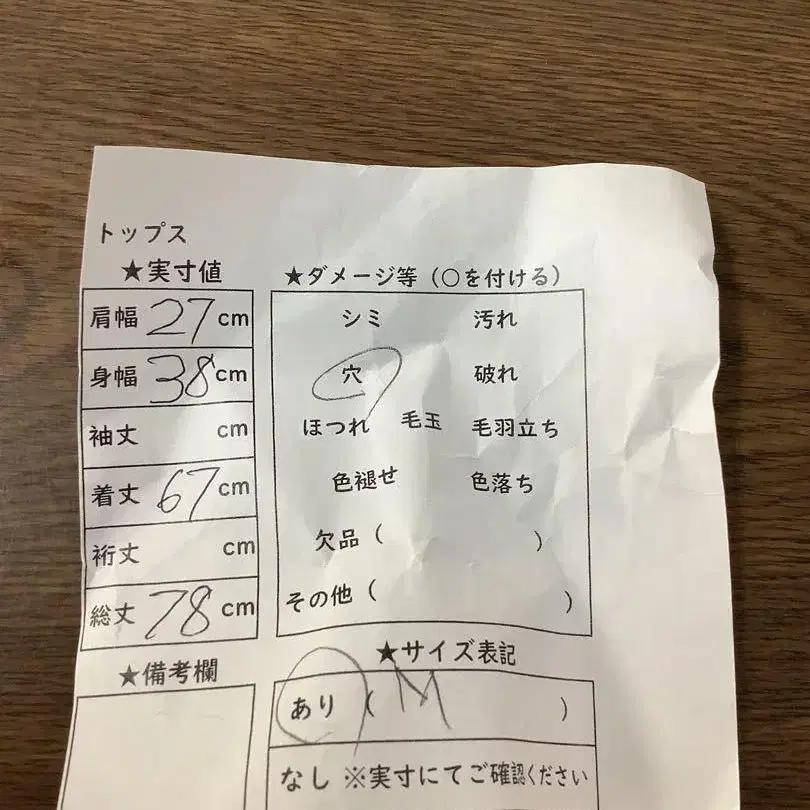 トップス
★実寸値
肩幅 27 cm
身幅 38 cm
袖丈 cm
着丈 67 cm
裄丈 cm
総丈 78 cm
★備考欄
★ダメージ等（○を付ける）
シミ 汚れ
穴 破れ
ほつれ 毛玉 毛羽立ち
色褪せ 色落ち
欠品（ ）
その他（ ）
★サイズ表記
あり（ M ）
なし ※実寸にてご確認ください